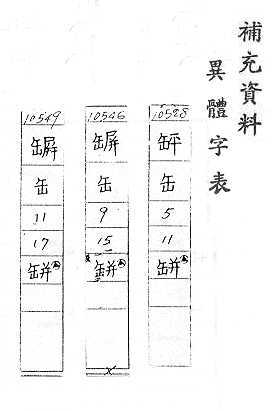 補充資料
異體字表
10528
缶
5
11
缾
10546
缶
9
15
缾
10549
缶
11
17
缾